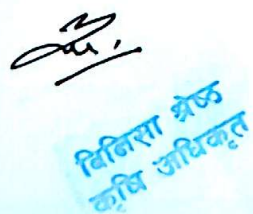 विनिसा श्रेष्ठ
कृषि अधिकृत